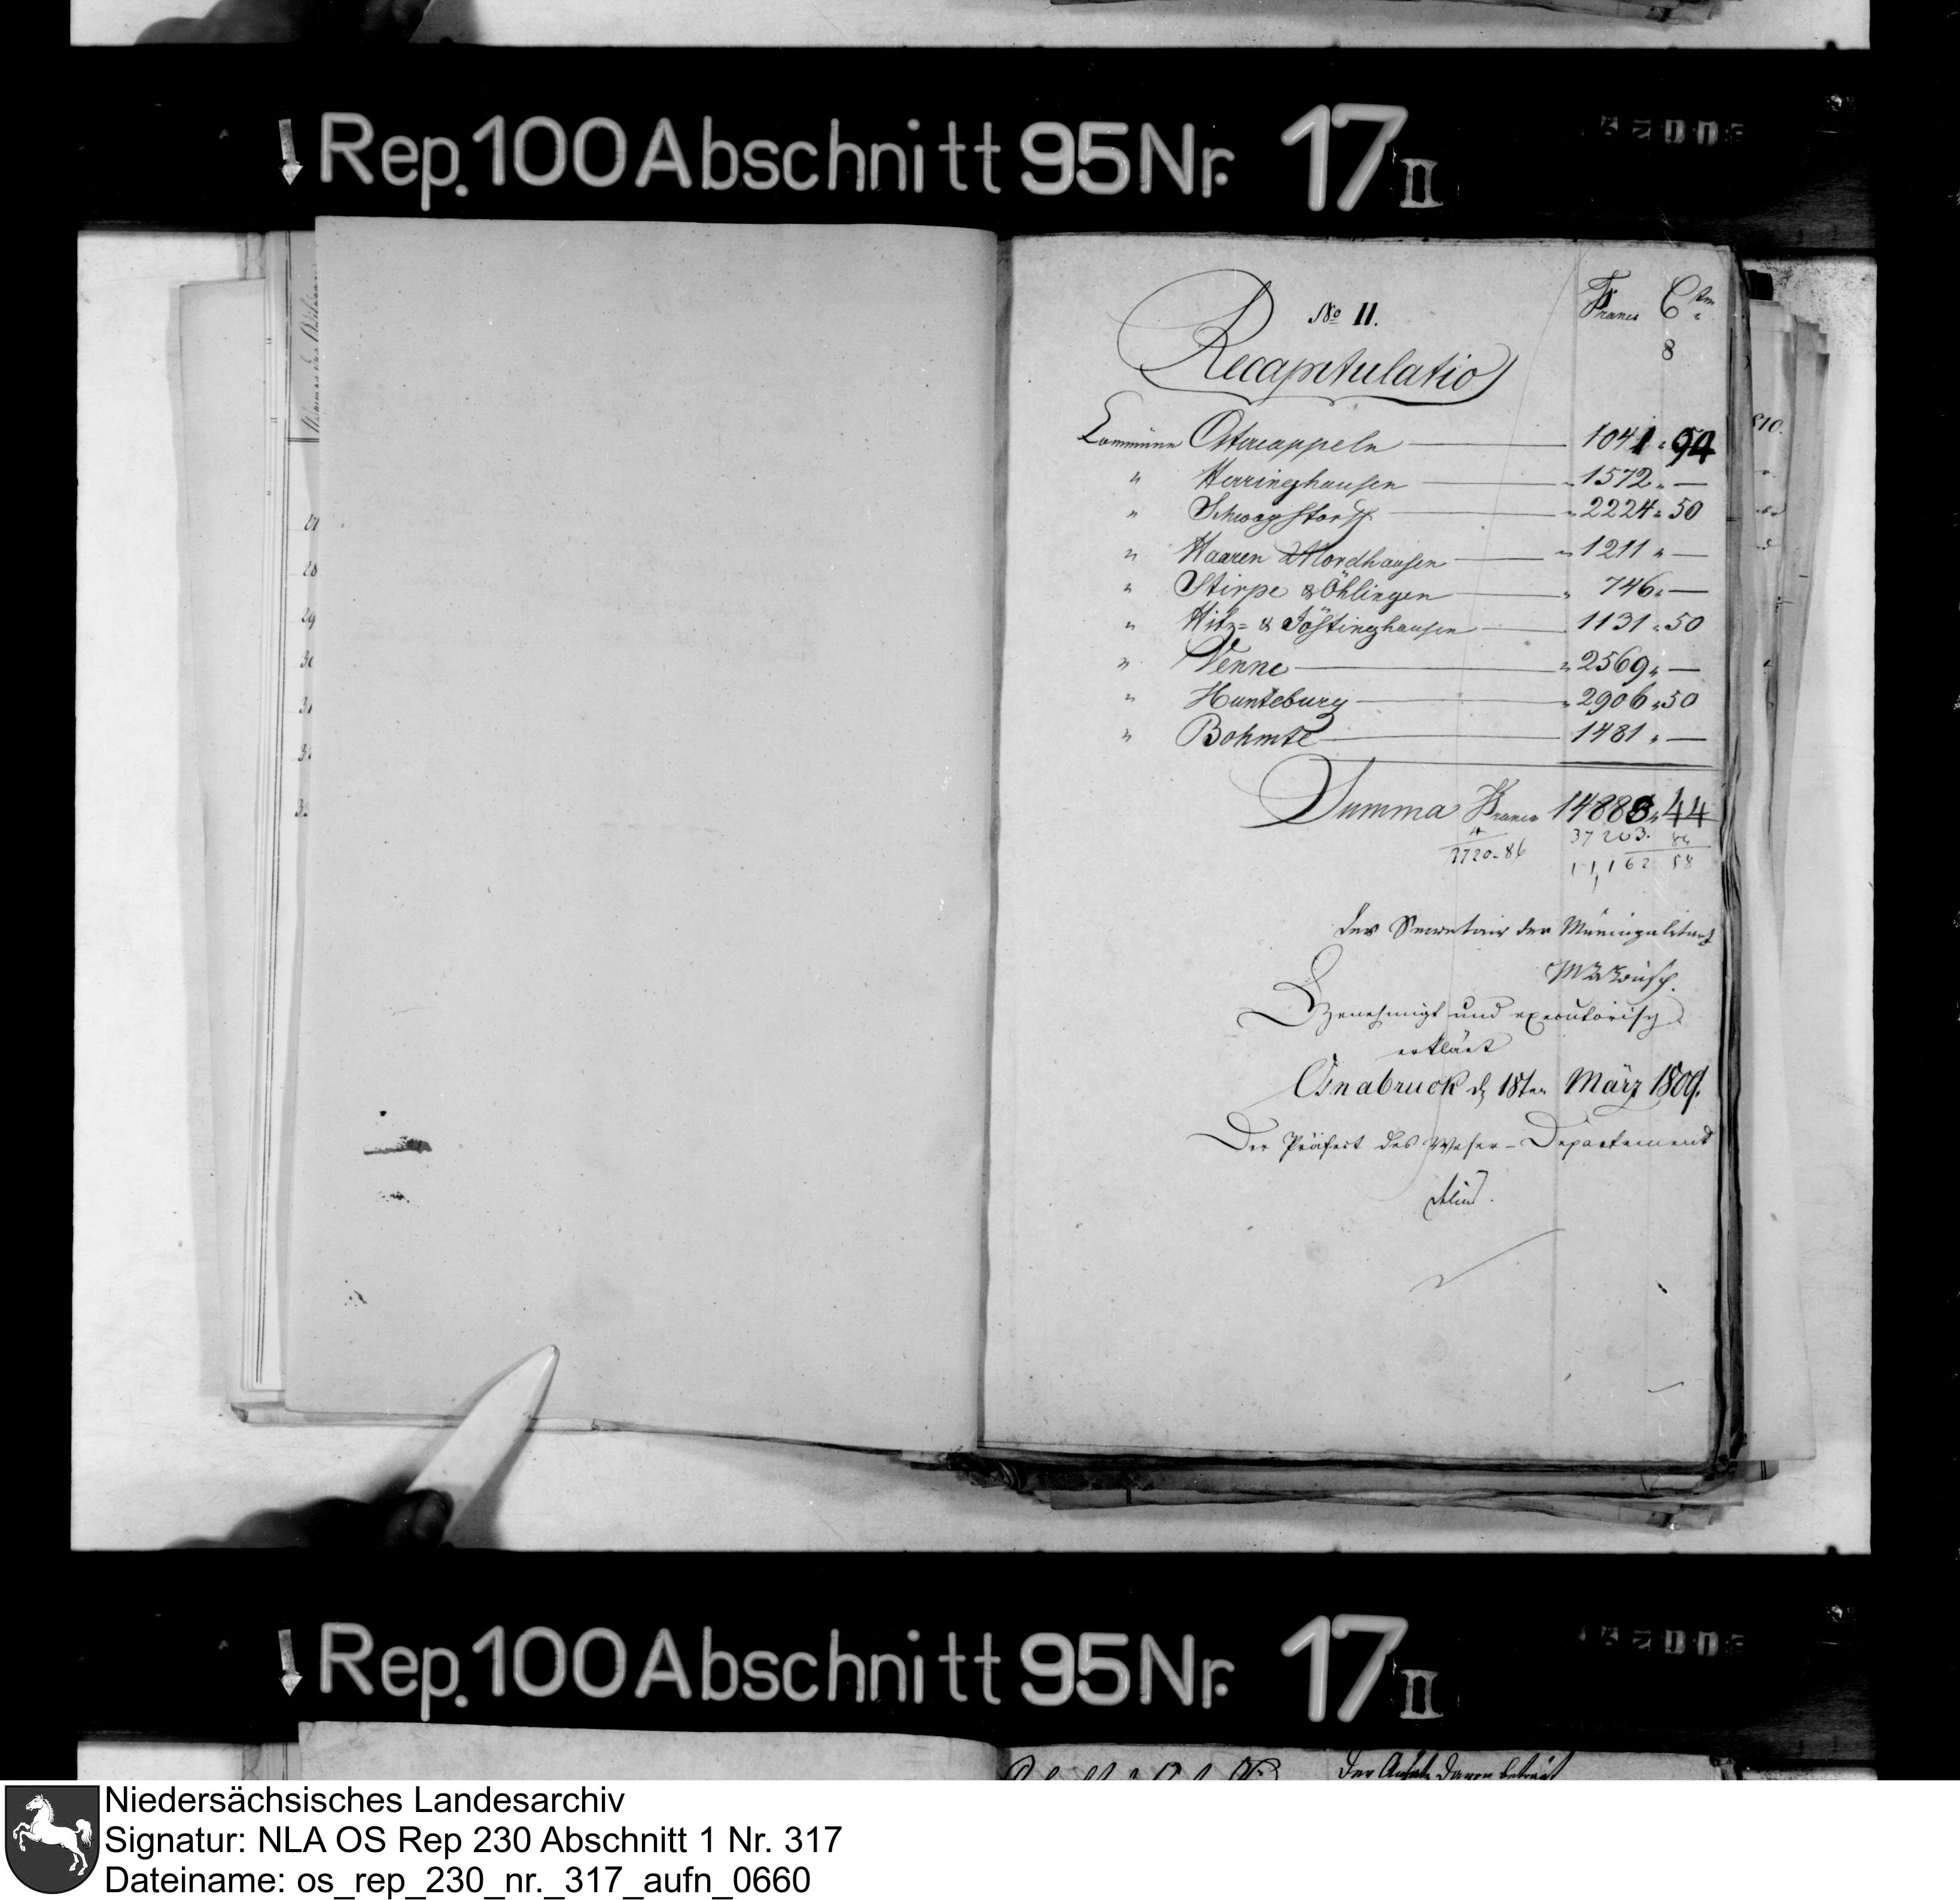 Rep. 100 Abschnitt 95 Nr. 17 II
No 11.
Francs Ctm
8
Recapitulatio
Commune Ostercappeln 1041 " 94
" Herringhausen " 1572 " —
" Schwagstorff " 2224 " 50
" Haaren & Nordhausen " 1211 " —
" Stirpe & Öhlingen " 746 " —
" Hitz= & Jöstinghausen 1131 " 50
" Venne " 2569 " —
" Hunteburg " 2906 " 50
" Bohmte 1481 " —
Summa Francs 14883 " 44
4 37203. 86
3720-86 11,162 58
der Secretair der Municipalitaet
Genehmigt und executorisch
erklärt
Osnabruck d 18ten März 1809.
Der Präfect des Weser-Departements
810.
Rep. 100 Abschnitt 95 Nr. 17 II
Niedersächsisches Landesarchiv
Signatur: NLA OS Rep 230 Abschnitt 1 Nr. 317
Dateiname: os_rep_230_nr._317_aufn_0660